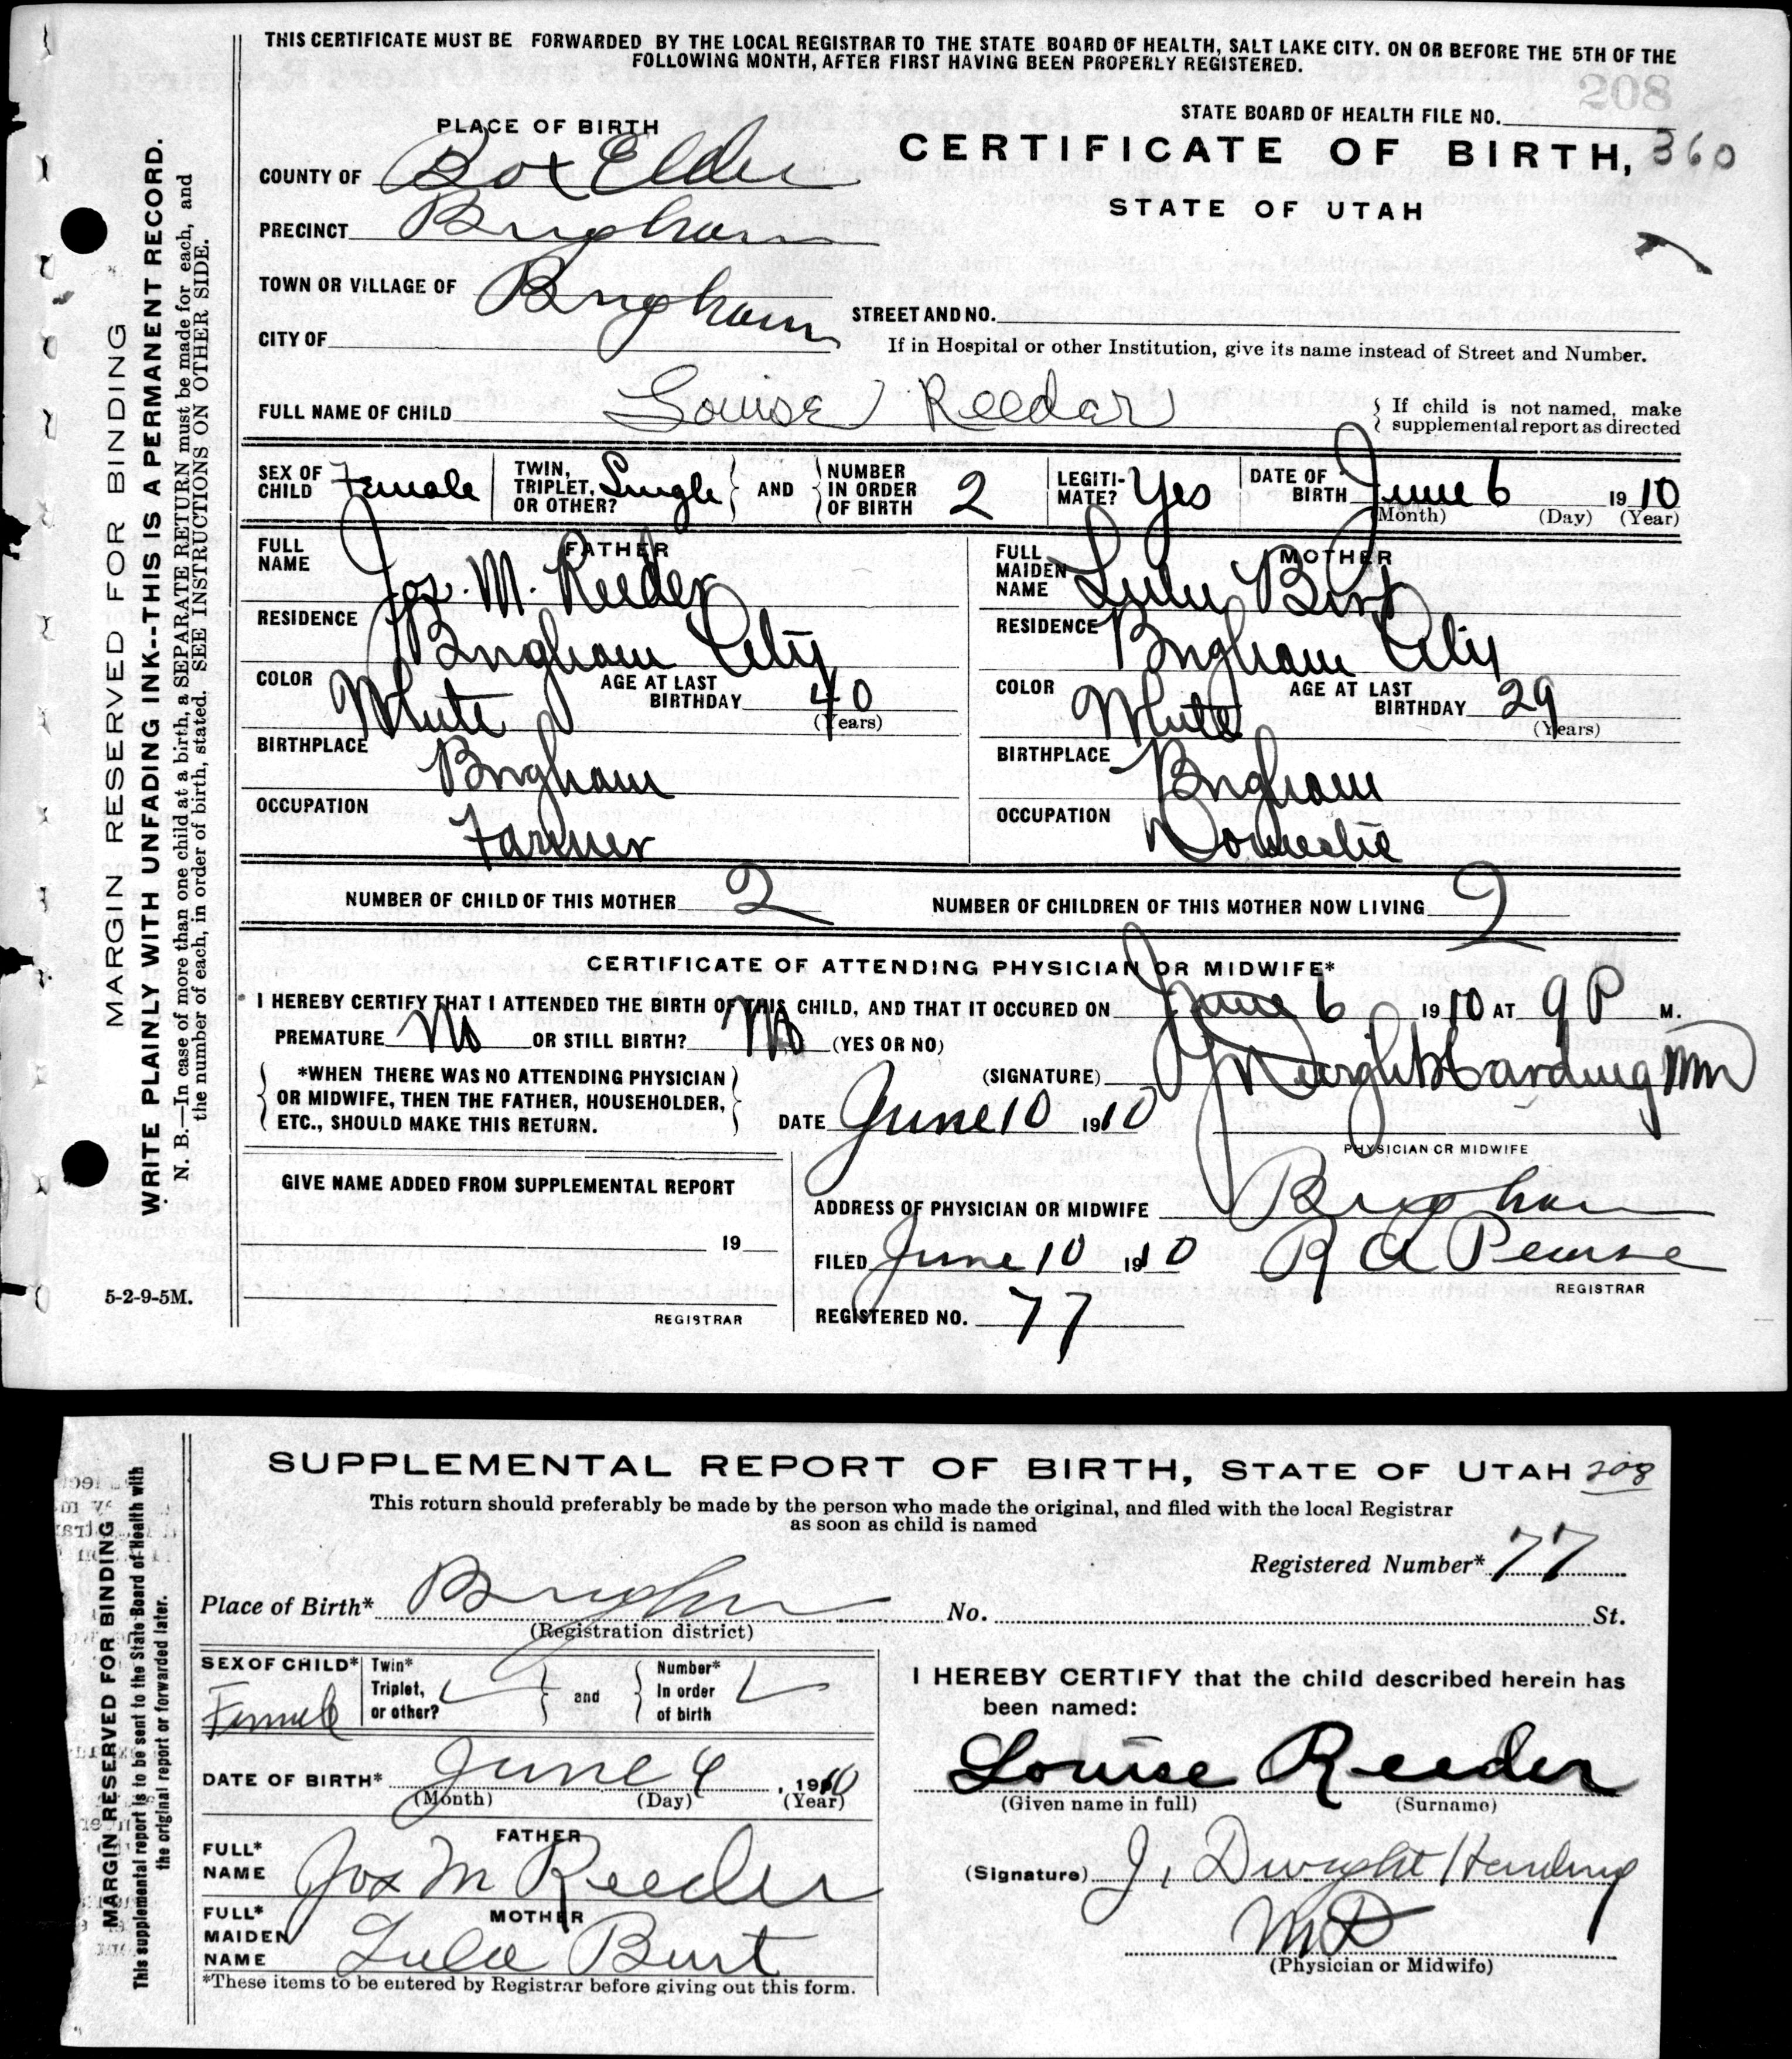 THIS CERTIFICATE MUST BE FORWARDED BY THE LOCAL REGISTRAR TO THE STATE BOARD OF HEALTH, SALT LAKE CITY. ON OR BEFORE THE 5TH OF THE
FOLLOWING MONTH, AFTER FIRST HAVING BEEN PROPERLY REGISTERED.
208
STATE BOARD OF HEALTH FILE NO.
PLACE OF BIRTH
CERTIFICATE OF BIRTH, 360
STATE OF UTAH
COUNTY OF Box Elder
PRECINCT Brigham
TOWN OR VILLAGE OF Brigham
STREET AND NO.
CITY OF
If in Hospital or other Institution, give its name instead of Street and Number.
FULL NAME OF CHILD Louise Reeder
If child is not named, make
supplemental report as directed
SEX OF CHILD Female
TWIN, TRIPLET, OR OTHER? Single
AND
NUMBER IN ORDER OF BIRTH 2
LEGITI-MATE? Yes
DATE OF BIRTH June 6 1910
(Month) (Day) (Year)
FATHER
FULL NAME Jos. M. Reeder
RESIDENCE Brigham City
COLOR White
AGE AT LAST BIRTHDAY 40
(Years)
BIRTHPLACE Brigham
OCCUPATION Farmer
MOTHER
FULL MAIDEN NAME Lulu Burt
RESIDENCE Brigham City
COLOR White
AGE AT LAST BIRTHDAY 29
(Years)
BIRTHPLACE Brigham
OCCUPATION Domestic
NUMBER OF CHILD OF THIS MOTHER 2
NUMBER OF CHILDREN OF THIS MOTHER NOW LIVING 2
CERTIFICATE OF ATTENDING PHYSICIAN OR MIDWIFE*
I HEREBY CERTIFY THAT I ATTENDED THE BIRTH OF THIS CHILD, AND THAT IT OCCURED ON June 6 1910 AT 9 P M.
PREMATURE No OR STILL BIRTH? No (YES OR NO)
*WHEN THERE WAS NO ATTENDING PHYSICIAN
OR MIDWIFE, THEN THE FATHER, HOUSEHOLDER,
ETC., SHOULD MAKE THIS RETURN.
(SIGNATURE) J Dwight Harding MD
DATE June 10 1910
PHYSICIAN OR MIDWIFE
GIVE NAME ADDED FROM SUPPLEMENTAL REPORT
19
REGISTRAR
ADDRESS OF PHYSICIAN OR MIDWIFE Brigham
FILED June 10 1910 R A Pearse
REGISTRAR
REGISTERED NO. 77
MARGIN RESERVED FOR BINDING
WRITE PLAINLY WITH UNFADING INK--THIS IS A PERMANENT RECORD.
N. B.—In case of more than one child at a birth, a SEPARATE RETURN must be made for each, and
the number of each, in order of birth, stated. SEE INSTRUCTIONS ON OTHER SIDE.
5-2-9-5M.
SUPPLEMENTAL REPORT OF BIRTH, STATE OF UTAH 208
This return should preferably be made by the person who made the original, and filed with the local Registrar
as soon as child is named
Registered Number* 77
Place of Birth* Brigham No. St.
(Registration district)
SEX OF CHILD* Female
Twin* Triplet, or other?
and
Number* In order of birth
DATE OF BIRTH* June 6, 1910
(Month) (Day) (Year)
FATHER
FULL* NAME Jos M Reeder
MOTHER
FULL* MAIDEN NAME Lula Burt
*These items to be entered by Registrar before giving out this form.
I HEREBY CERTIFY that the child described herein has
been named:
Louise Reeder
(Given name in full) (Surname)
(Signature) J, Dwight Harding
MD
(Physician or Midwife)
MARGIN RESERVED FOR BINDING
This supplemental report is to be sent to the State Board of Health with
the original report or forwarded later.